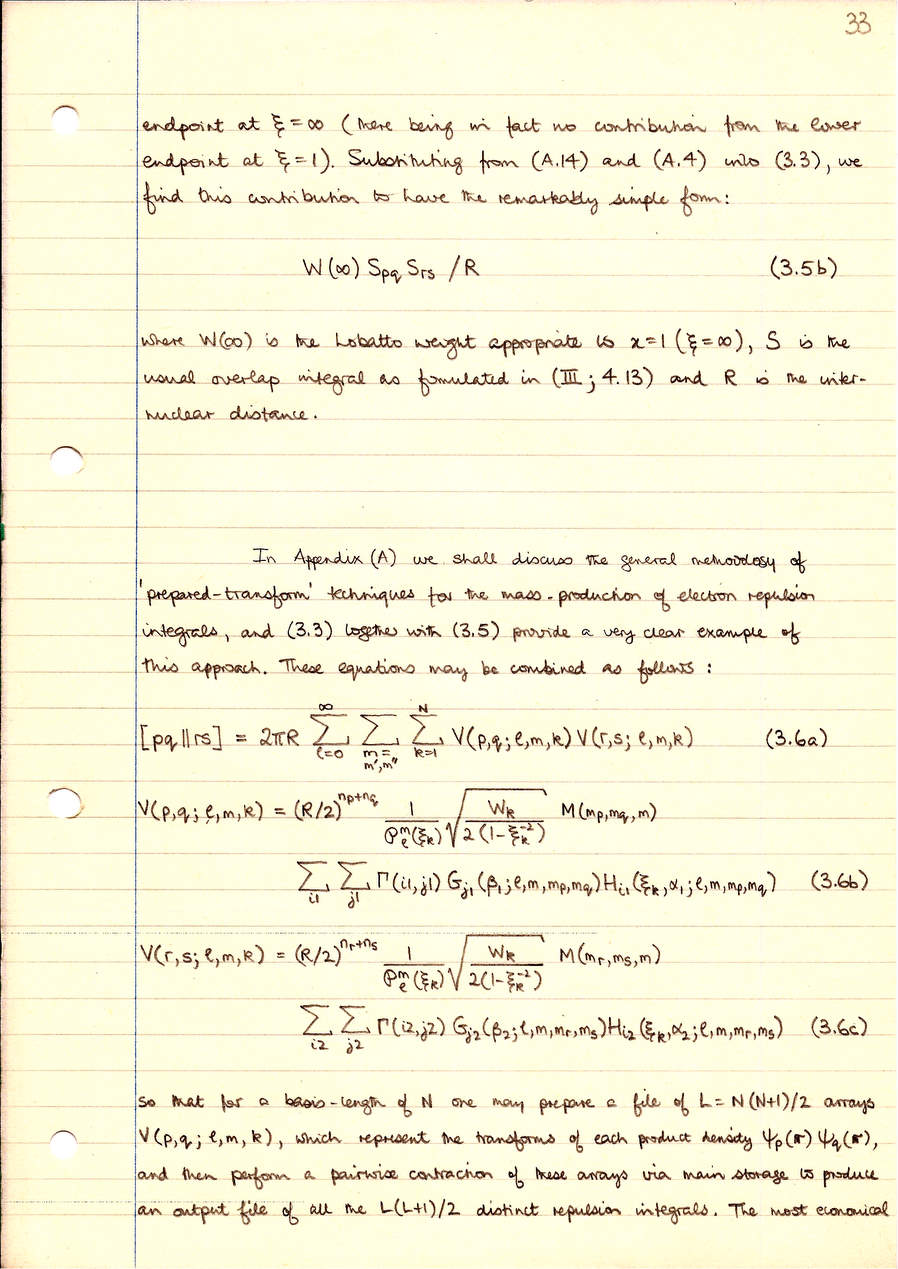 33
endpoint at ξ = ∞ (there being in fact no contribution from the lower
endpoint at ξ = 1). Substituting from (A.14) and (A.4) into (3.3), we
find this contribution to have the remarkably simple form:
W(∞) S_pq S_rs / R (3.5b)
where W(∞) is the Lobatto weight appropriate to x=1 (ξ=∞), S is the
usual overlap integral as formulated in (III; 4.13) and R is the inter-
nuclear distance.
In Appendix (A) we shall discuss the general methodology of
'prepared-transform' techniques for the mass-production of electron repulsion
integrals, and (3.3) together with (3.5) provide a very clear example of
this approach. These equations may be combined as follows:
[pq||rs] = 2πR ∑_{ℓ=0}^{∞} ∑_{m=m',m''} ∑_{k=1}^{N} V(p,q;ℓ,m,k) V(r,s;ℓ,m,k) (3.6a)
V(p,q;ℓ,m,k) = (R/2)^{n_p+n_q} 1/𝒫_ℓ^m(ξ_k) √(W_k / 2(1-ξ_k^{-2})) M(m_p,m_q,m)
∑_{i1} ∑_{j1} Γ(i1,j1) G_{j1}(β_1;ℓ,m,m_p,m_q) H_{i1}(ξ_k,α_1;ℓ,m,m_p,m_q) (3.6b)
V(r,s;ℓ,m,k) = (R/2)^{n_r+n_s} 1/𝒫_ℓ^m(ξ_k) √(W_k / 2(1-ξ_k^{-2})) M(m_r,m_s,m)
∑_{i2} ∑_{j2} Γ(i2,j2) G_{j2}(β_2;ℓ,m,m_r,m_s) H_{i2}(ξ_k,α_2;ℓ,m,m_r,m_s) (3.6c)
so that for a basis-length of N one may prepare a file of L = N(N+1)/2 arrays
V(p,q;ℓ,m,k), which represent the transforms of each product density ψ_p(r) ψ_q(r),
and then perform a pairwise contraction of these arrays via main storage to produce
an output file of all the L(L+1)/2 distinct repulsion integrals. The most economical